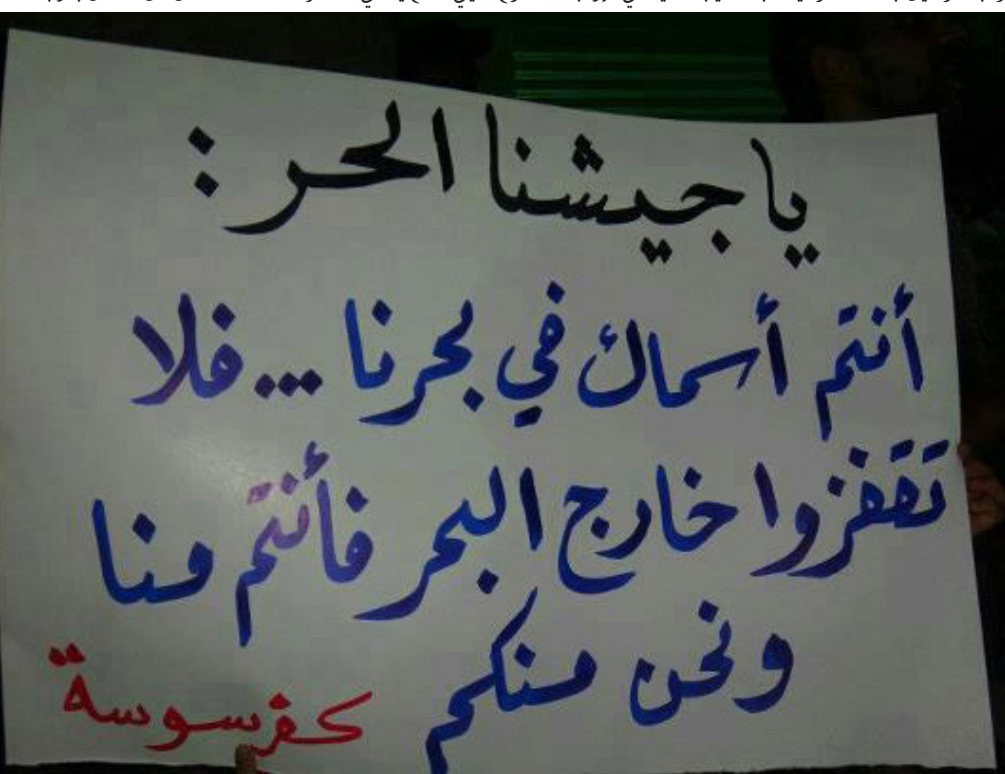 يا جيشنا الحر :
أنتم أسماك في بحرنا ... فلا
تقفزوا خارج البحر فأنتم منا
ونحن منكم
كفرسوسة